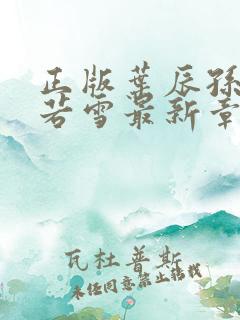 正版葉辰孫
若雪最新章
瓦杜普斯
未经同意禁止转载